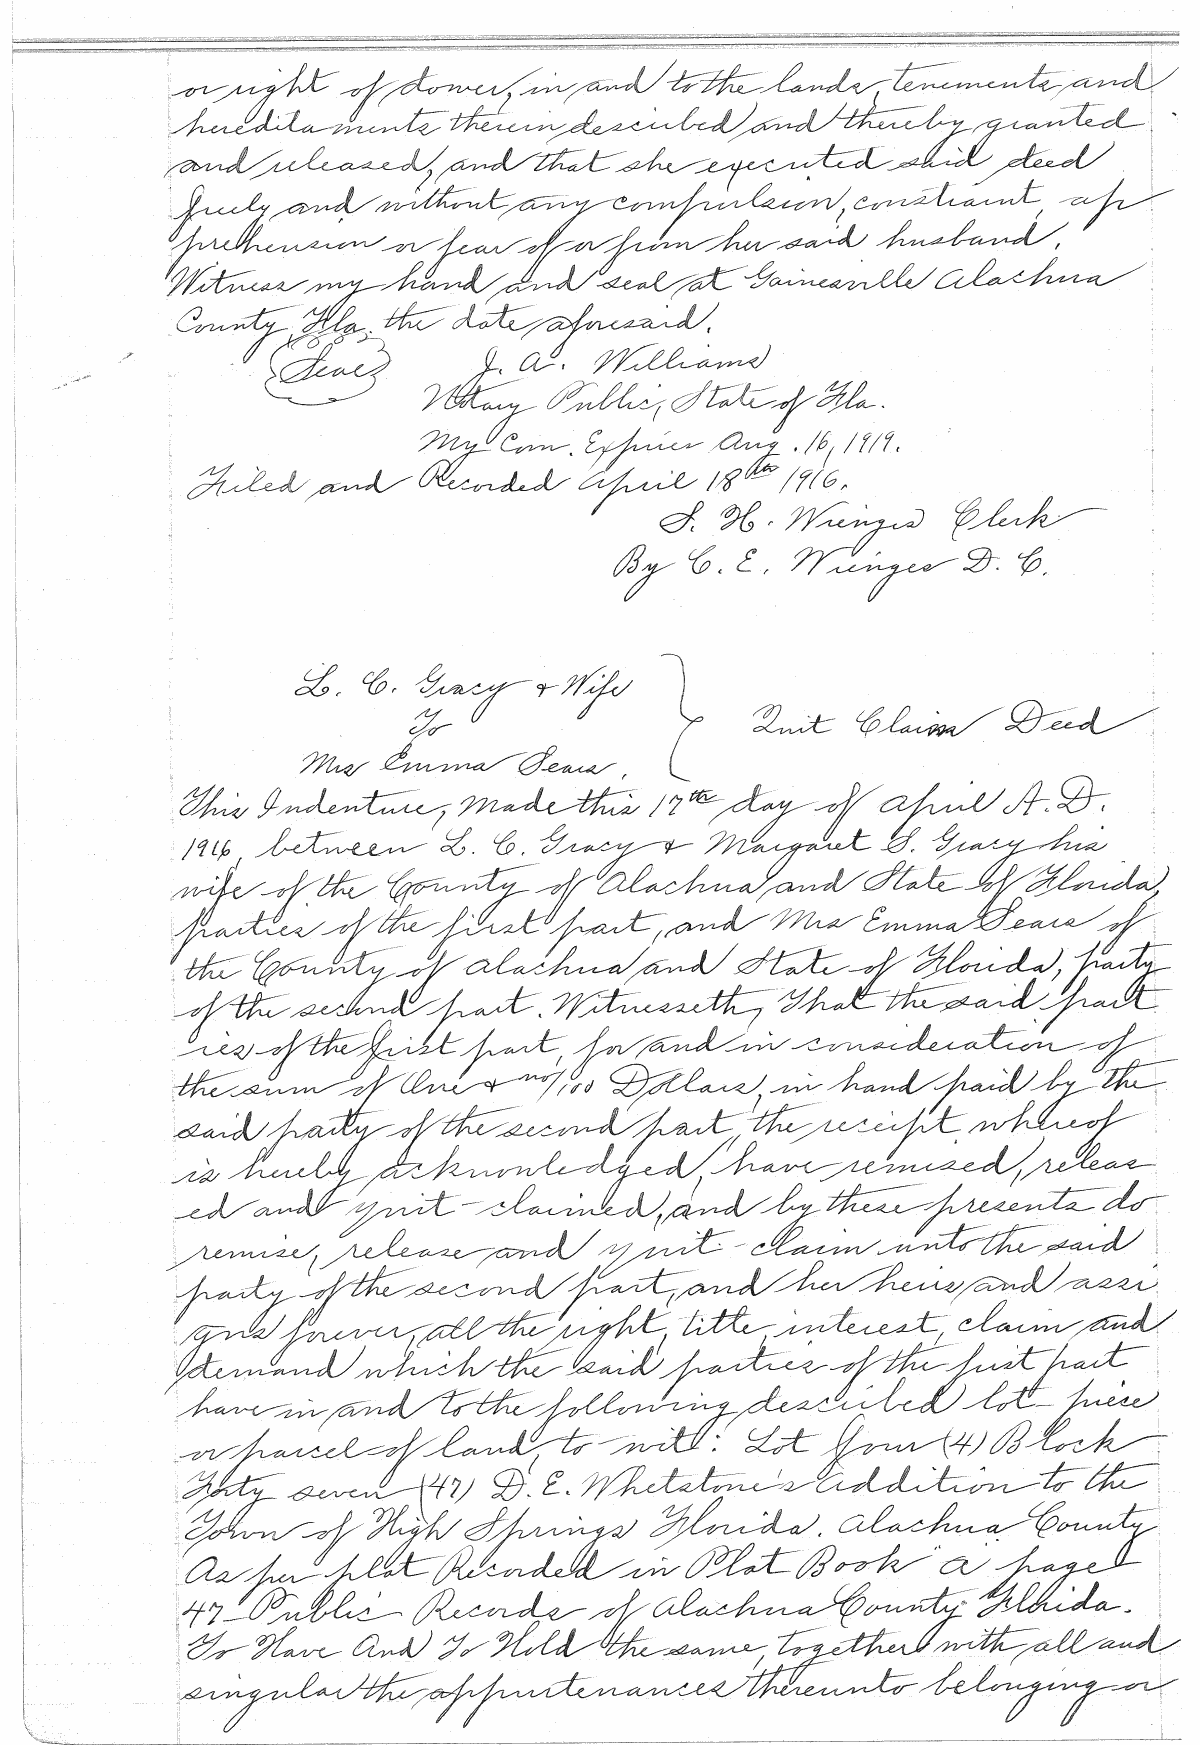 or right of dower, in and to the lands, tenements and
hereditaments therein described and thereby granted
and released, and that she executed said deed
freely and without any compulsion, constraint, ap
prehension or fear of or from her said husband.
Witness my hand and seal at Gainesville Alachua
County, Fla, the date aforesaid.
(Seal) J. A. Williams
Notary Public, State of Fla.
My Com. Expires Aug. 16, 1919.
Filed and Recorded April 18th 1916.
S. H. Wienges Clerk
By C. E. Wienges D. C.
L. C. Gracy & Wife
To
Quit Claim Deed
Mrs Emma Sears.
This Indenture, Made this 17th day of April A. D.
1916, between L. C. Gracy & Margaret S. Gracy his
wife of the County of Alachua and State of Florida,
parties of the first part, and Mrs Emma Sears of
the County of Alachua and State of Florida, party
of the second part. Witnesseth, That the said part
ies of the first part, for and in consideration of
the sum of One & no/100 Dollars, in hand paid by the
said party of the second part, the receipt whereof
is hereby acknowledged, have remised, releas
ed and quit-claimed, and by these presents do
remise, release and quit-claim unto the said
party of the second part, and her heirs and assi
gns forever, all the right, title, interest, claim and
demand which the said parties of the first part
have in and to the following described lot- piece
or parcel of land, to wit: Lot four (4) Block
Forty seven (47) D. E. Whetstone's addition to the
Town of High Springs Florida. Alachua County
As per plat Recorded in Plat Book "A" page
47- Public Records of Alachua County Florida.
To Have And To Hold the same, together with all and
singular the appurtenances thereunto belonging or